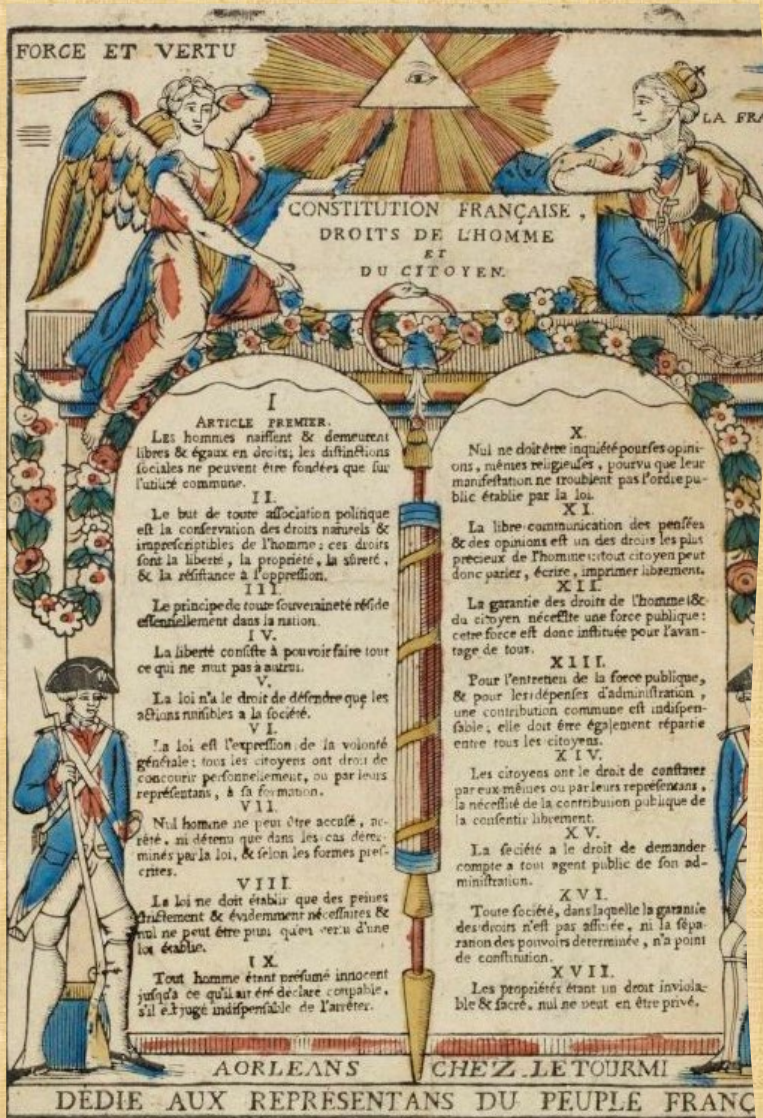 FORCE ET VERTU
LA FRA
CONSTITUTION FRANÇAISE,
DROITS DE L'HOMME
ET
DU CITOYEN.
I
ARTICLE PREMIER.
Les hommes naissent & demeurent
libres & égaux en droits; les distinctions
sociales ne peuvent être fondées que sur
l'utilité commune.
II.
Le but de toute association politique
est la conservation des droits naturels &
imprescriptibles de l'homme: ces droits
sont la liberté, la propriété, la sûreté,
& la résistance à l'oppression.
III.
Le principe de toute souveraineté réside
essentiellement dans la nation.
IV.
La liberté consiste à pouvoir faire tout
ce qui ne nuit pas à autrui.
V.
La loi n'a le droit de défendre que les
actions nuisibles a la société.
VI.
La loi est l'expression de la volonté
générale; tous les citoyens ont droit de
concourir personnellement, ou par leurs
représentans, à sa formation.
VII.
Nul homme ne peut être accusé, ar-
rêté, ni détenu que dans les cas déter-
minés par la loi, & selon les formes pres-
crites.
VIII.
La loi ne doit établir que des peines
strictement & évidemment nécessaires &
nul ne peut être puni qu'en vertu d'une
loi établie.
IX.
Tout homme étant présumé innocent
jusqu'a ce qu'il ait été déclare coupable,
s'il est jugé indispensable de l'arrêter.
X.
Nul ne doit être inquiété pour ses opini-
ons, mêmes religieuses, pourvu que leur
manifestation ne troublent pas l'ordre pu-
blic établie par la loi.
XI.
La libre communication des pensées
& des opinions est un des droits les plus
précieux de l'homme: tout citoyen peut
donc parler, écrire, imprimer librement.
XII.
La garantie des droits de l'homme &
du citoyen nécessite une force publique:
cette force est donc instituée pour l'avan-
tage de tous.
XIII.
Pour l'entretien de la force publique,
& pour les dépenses d'administration,
une contribution commune est indispen-
sable; elle doit être également répartie
entre tous les citoyens.
XIV.
Les citoyens ont le droit de constater
par eux-mêmes ou par leurs représentans,
la nécessité de la contribution publique de
la consentir librement.
XV.
La société a le droit de demander
compte a tout agent public de son ad-
ministration.
XVI.
Toute société, dans laquelle la garantie
des droits n'est pas assurée, ni la sépa-
ration des pouvoirs determinée, n'a point
de constitution.
XVII.
Les propriétés étant un droit inviola-
ble & sacré, nul ne peut en être privé.
A ORLEANS CHEZ LETOURMI
DÉDIE AUX REPRÉSENTANS DU PEUPLE FRANÇ